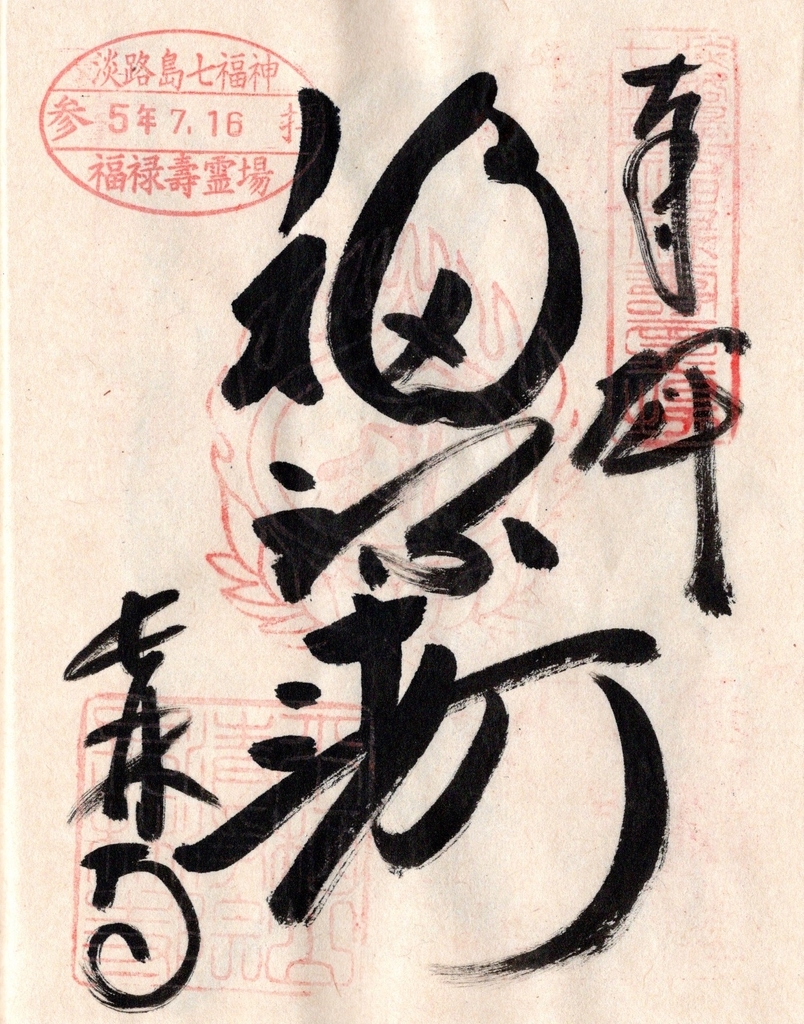 淡路島七福神
参拝
5年7.16
福禄壽霊場
奉拝
福禄寿
長林寺